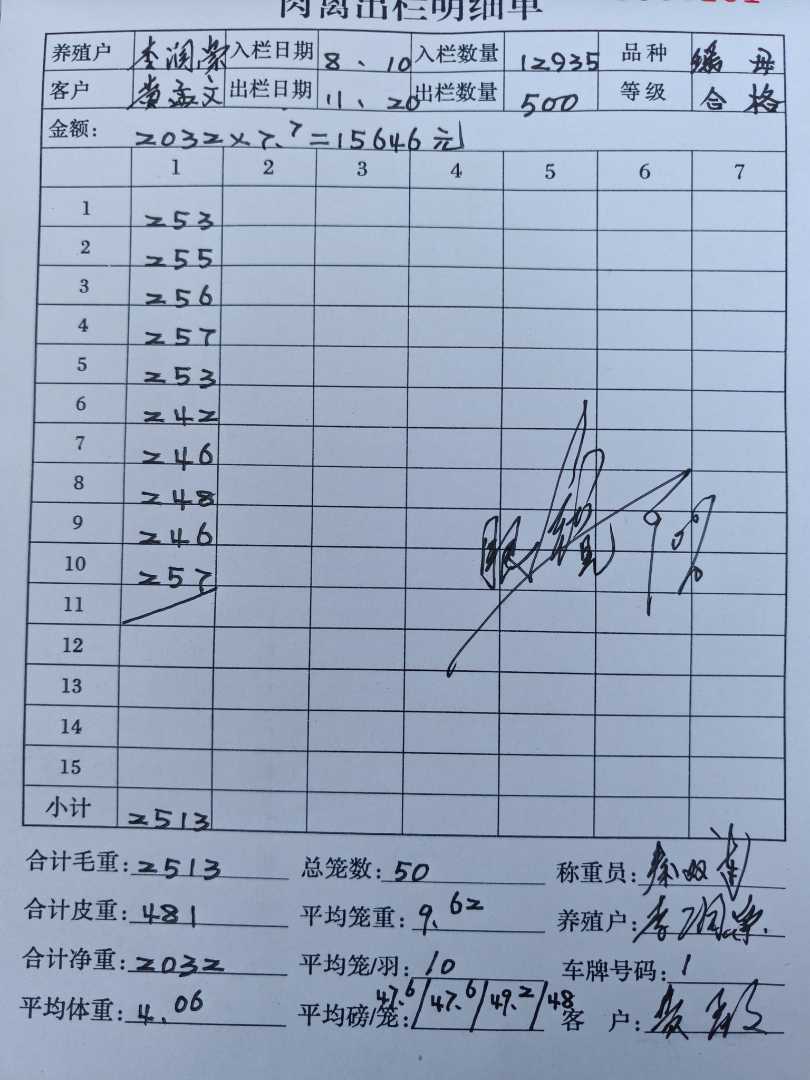 肉禽出栏明细单
养殖户 李润棠 入栏日期 8、10 入栏数量 12935 品种
客户 黄孟文 出栏日期 11、20 出栏数量 500 等级 合格
金额: 2032×7.7=15646元
1 2 3 4 5 6 7
1 253
2 255
3 256
4 257
5 253
6 242
7 246
8 248
9 246
10 257
11
12
13
14
15
小计 2513
合计毛重: 2513 总笼数: 50 称重员:
合计皮重: 481 平均笼重: 9.62 养殖户:
合计净重: 2032 平均笼/羽: 10 车牌号码: 1
平均体重: 4.06 平均磅/笼: 47.6/47.6/49.2/48 客户: